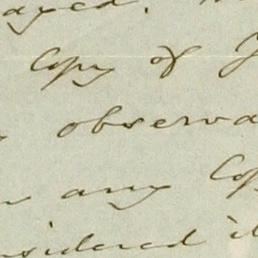 Copy of
observa
any Cop
sidered it